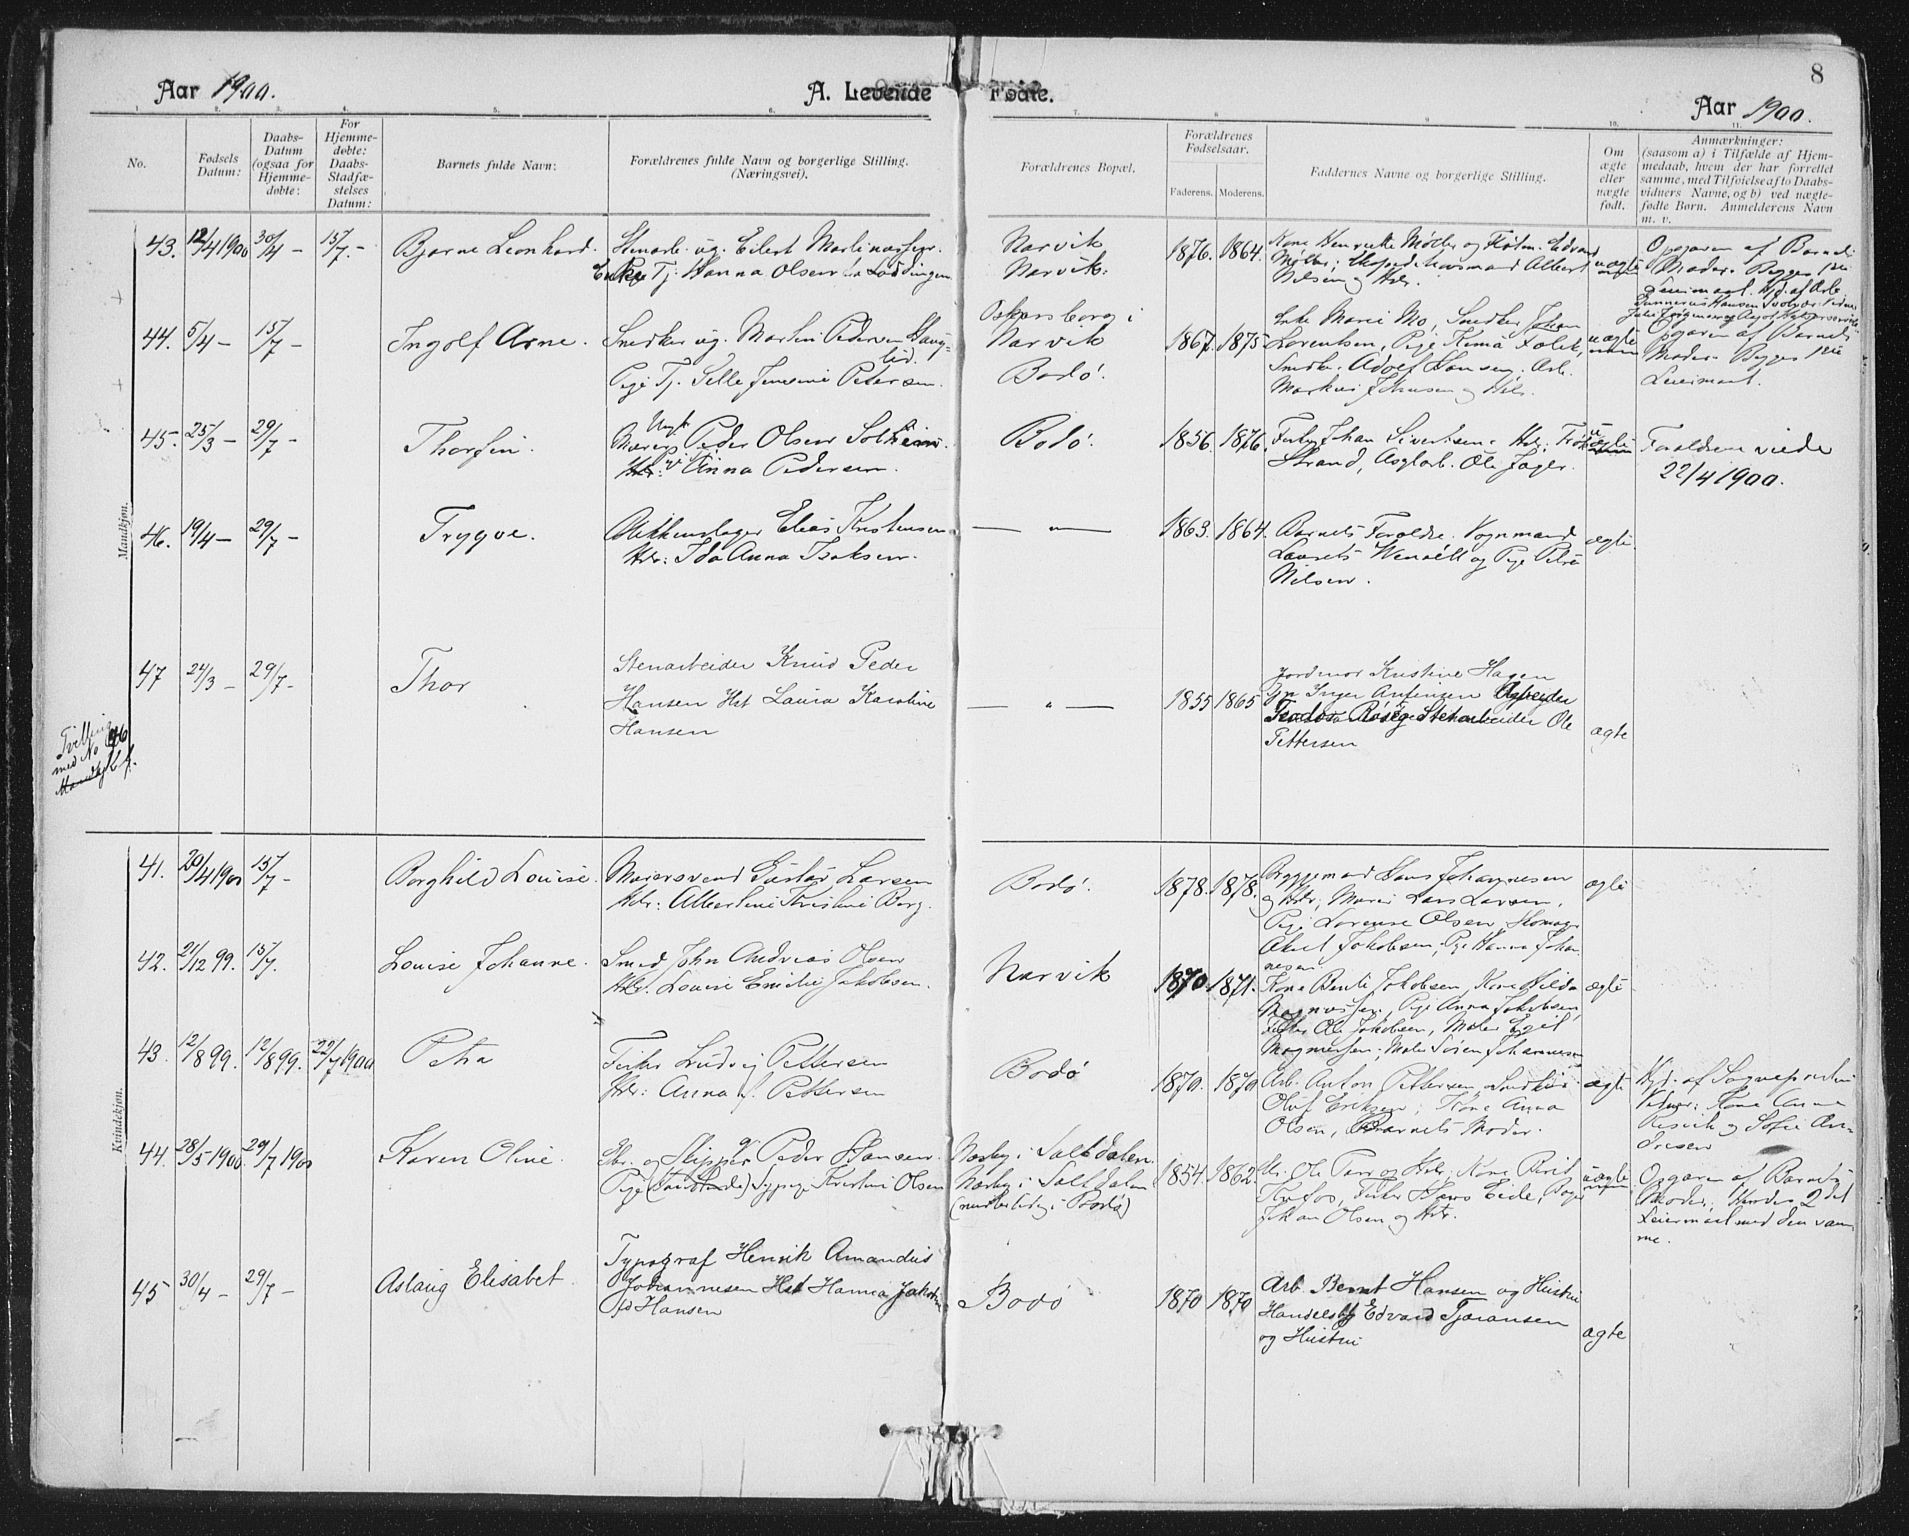 8
Aar 1900.
A. Levende Fødte.
Aar 1900.
1. 2. 3. 4. 5. 6. 7. 8. 9. 10. 11.
No.
Fødsels Datum:
Daabs-Datum (ogsaa for Hjemme-døbte:
For Hjemme-døbte: Daabs-Stadfæ-stelses Datum:
Barnets fulde Navn:
Forældrenes fulde Navn og borgerlige Stilling.
(Næringsvei).
Forældrenes Bopæl.
Forældrenes Fødselsaar.
Faderens. Moderens.
Faddernes Navne og borgerlige Stilling.
Om ægte eller uægte født.
Anmærkninger:
(saasom a) i Tilfælde af Hjem-
medaab, hvem der har forrettet
samme, med Tilføielse af to Daabs-
vidners Navne, og b) ved uægte-
fødte Børn. Anmelderens Navn
m. v.
Mandkjøn.
43. 12/4 1900 30/4 – 15/7 – Bjarne Leonhard.
Stenarb. ug. Eilert Martinussen
Pige Tj. Hanna Olsen Lødingen
Narvik
Narvik.
1876. 1864.
Kone Henrikke Møller og
Møller; Albert
Nilsen og Hstr.
uægte
Opgaven af Barnets
Moder. Begges 1ste
Leiermaal. Hjd. af Arb.
44. 5/4 – 15/7 – Ingolf Arne.
Snedker ug. Martin Pedersen
Pige Tj. Jensine Petersen.
Oskarsborg i
Narvik
Bodø.
1867. 1875
Enke Marie Mo, Snedker Johan
Lorentsen, Pige
Snedk. Adolf Hansen, Arb.
Markus Johnsen og Hstr.
uægte
Opgaven af Barnets
Moder. Begges 1ste
Leiermaal.
45. 25/3 – 29/7 – Thorfin.
Peder Olsen Solheim.
Anna Pedersen.
Bodø.
1856. 1876.
Johan Sivertsen. Hstr.
Strand, Ole Jager.
Forældrene viede
22/4 1900.
46. 19/4 – 29/7 – Trygve.
Blikkenslager Elias Kristensen
Hstr: Ida Anna Isaksen.
— " —
1863. 1864.
Barnets Forældre. Vognmand
Laurits og Pige Petra
Nilsen.
ægte.
47 24/3 – 29/7 – Thor
Stenarbeider Knud Peder
Hansen Hst Laura Karoline
Hansen
— " —
1855 1865
Jordmor Kristine Hagen
Gp Inger Arbeider
Stenarbeider Ole
Pettersen
ægte
Tvilling
med No 46
Kvindekjøn.
41. 20/4 1900 15/7 – Borghild Louise.
Murersvend Gustav Larsen
Hstr: Albertine Kristine Borg.
Bodø.
1878. 1878.
Bryggemand Hans Johannesen
og Hstr, Murer Lars Larsen,
Pige Lorense Olsen,
Jakobsen, Pige Hanna Johan
nesen.
ægte
42. 21/12 99. 15/7. Louise Johanne.
Smed John Andreas Olsen
Hstr. Louise Emilie Jakobsen.
Narvik
1870. 1871.
Kone Bente Jakobsen, Kone Hilda
Magnussen, Pige Anna Jakobsen,
Fisker Ole Jakobsen, Maler Egil
Magnussen, Maler Søren Johannesen
ægte
43. 12/8 99. 12/8 99. 22/7 1900 Petra
Fisker Ludvig Pettersen
Hstr: Anna f. Pettersen
Bodø
1870. 1870
Arb. Anton Pettersen, Snedker
Oluf Eriksen, Kone Anna
Olsen, Barnets Moder.
ægte
Hjd. af Sognepresten
Vidner: Kone Anne
og Sofie An-
dresen
44. 28/5 1900 29/7 1900 Karen Oline.
Gbr. og Skipper Peder Hansen.
Pige Sypige Kristine Olsen
Næsby i Saltdalen
Næsby i Saltdalen
(midlertidig i Bodø)
1854. 1862.
Ole og Hstr. Kone Berit
Fisker Hans Eide,
Johan Olsen og Hstr.
uægte
Opgaven af Barnets
Moder, Hendes 2det
Leiermaal med den sam-
me.
45 30/4 – 29/7 – Aslaug Elisabet.
Typograf Henrik Amandus
Johannesen Hst Hanna
Hansen
Bodø
1870 1870
Arb. Bernt Hansen og Hustru
Edvard
og Hustru
ægte